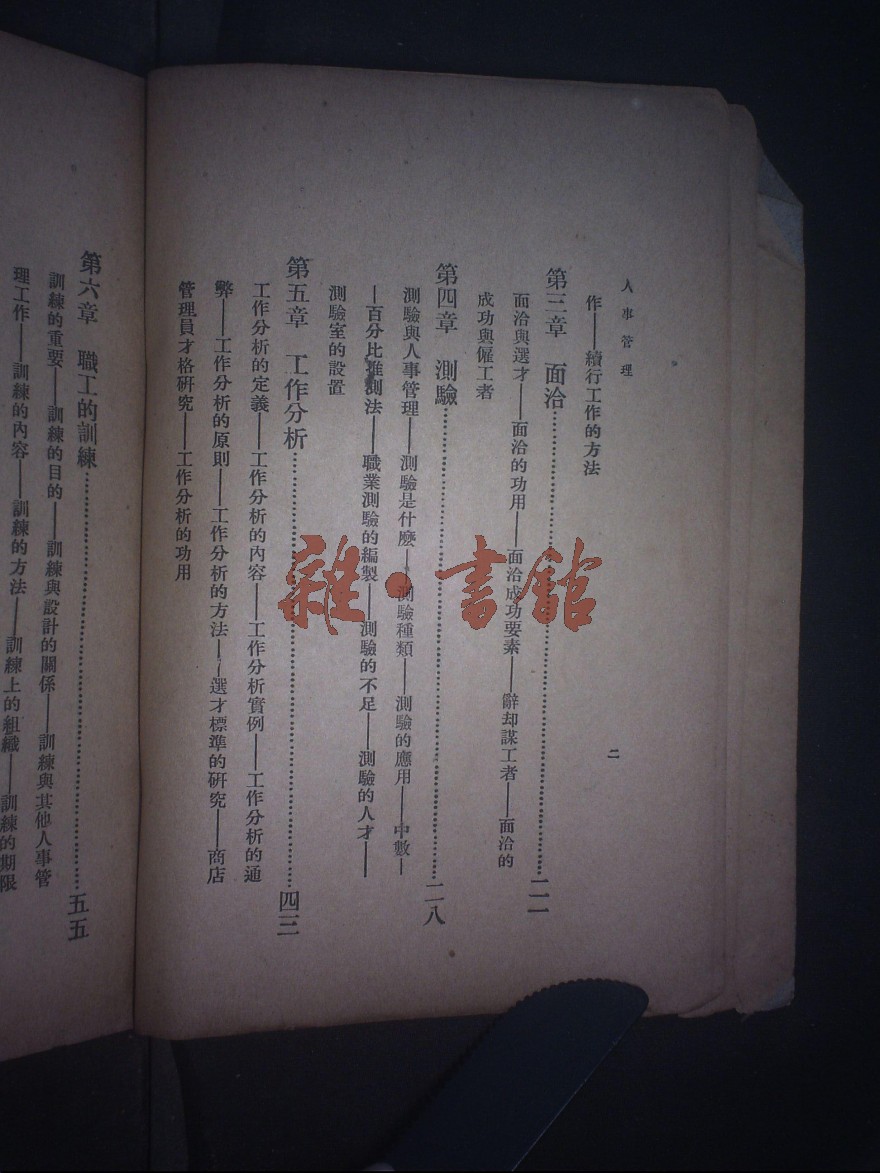 人事管理
二
作——續行工作的方法
第三章 面洽……二一
面洽與選才——面洽的功用——面洽成功要素——辭却謀工者——面洽的
成功與僱工者
第四章 測驗……二八
測驗與人事管理——測驗是什麽——測驗種類——測驗的應用——中數—
—百分比推測法——職業測驗的編製——測驗的不足——測驗的人才——
測驗室的設置
第五章 工作分析……四三
工作分析的定義——工作分析的內容——工作分析實例——工作分析的通
弊——工作分析的原則——工作分析的方法——選才標準的研究——商店
管理員才格研究——工作分析的功用
第六章 職工的訓練……五五
訓練的重要——訓練的目的——訓練與設計的關係——訓練與其他人事管
理工作——訓練的內容——訓練的方法——訓練上的組織——訓練的期限
雜·書館